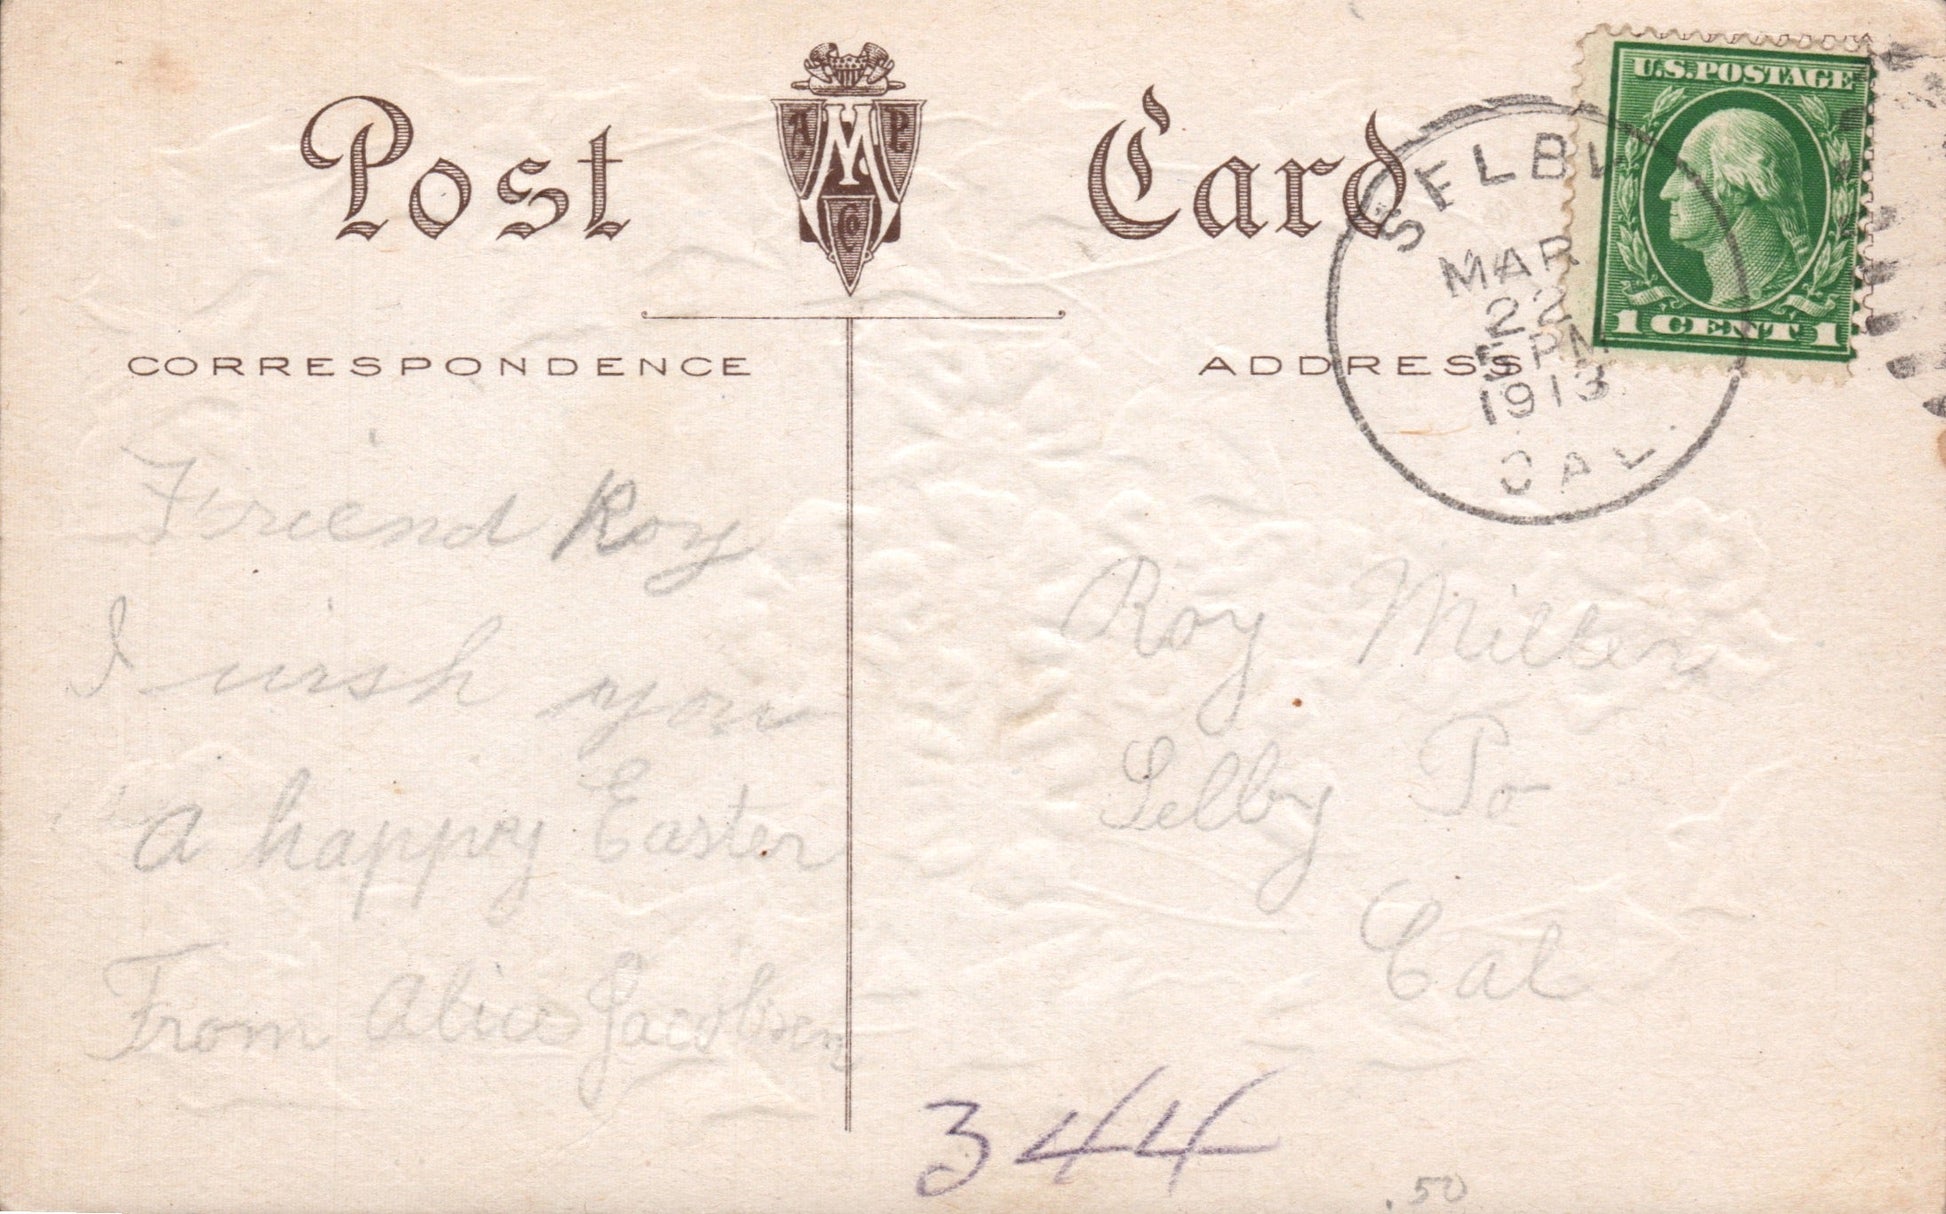 Post Card
A M P C
U.S. POSTAGE
1 CENT 1
SELBY
MAR
22
5 PM
1913
CAL.
CORRESPONDENCE
ADDRESS
Friend Roy
I wish you
a happy Easter
From Alice Jacobsen
Roy Miller
Selby Po
Cal
344
.50